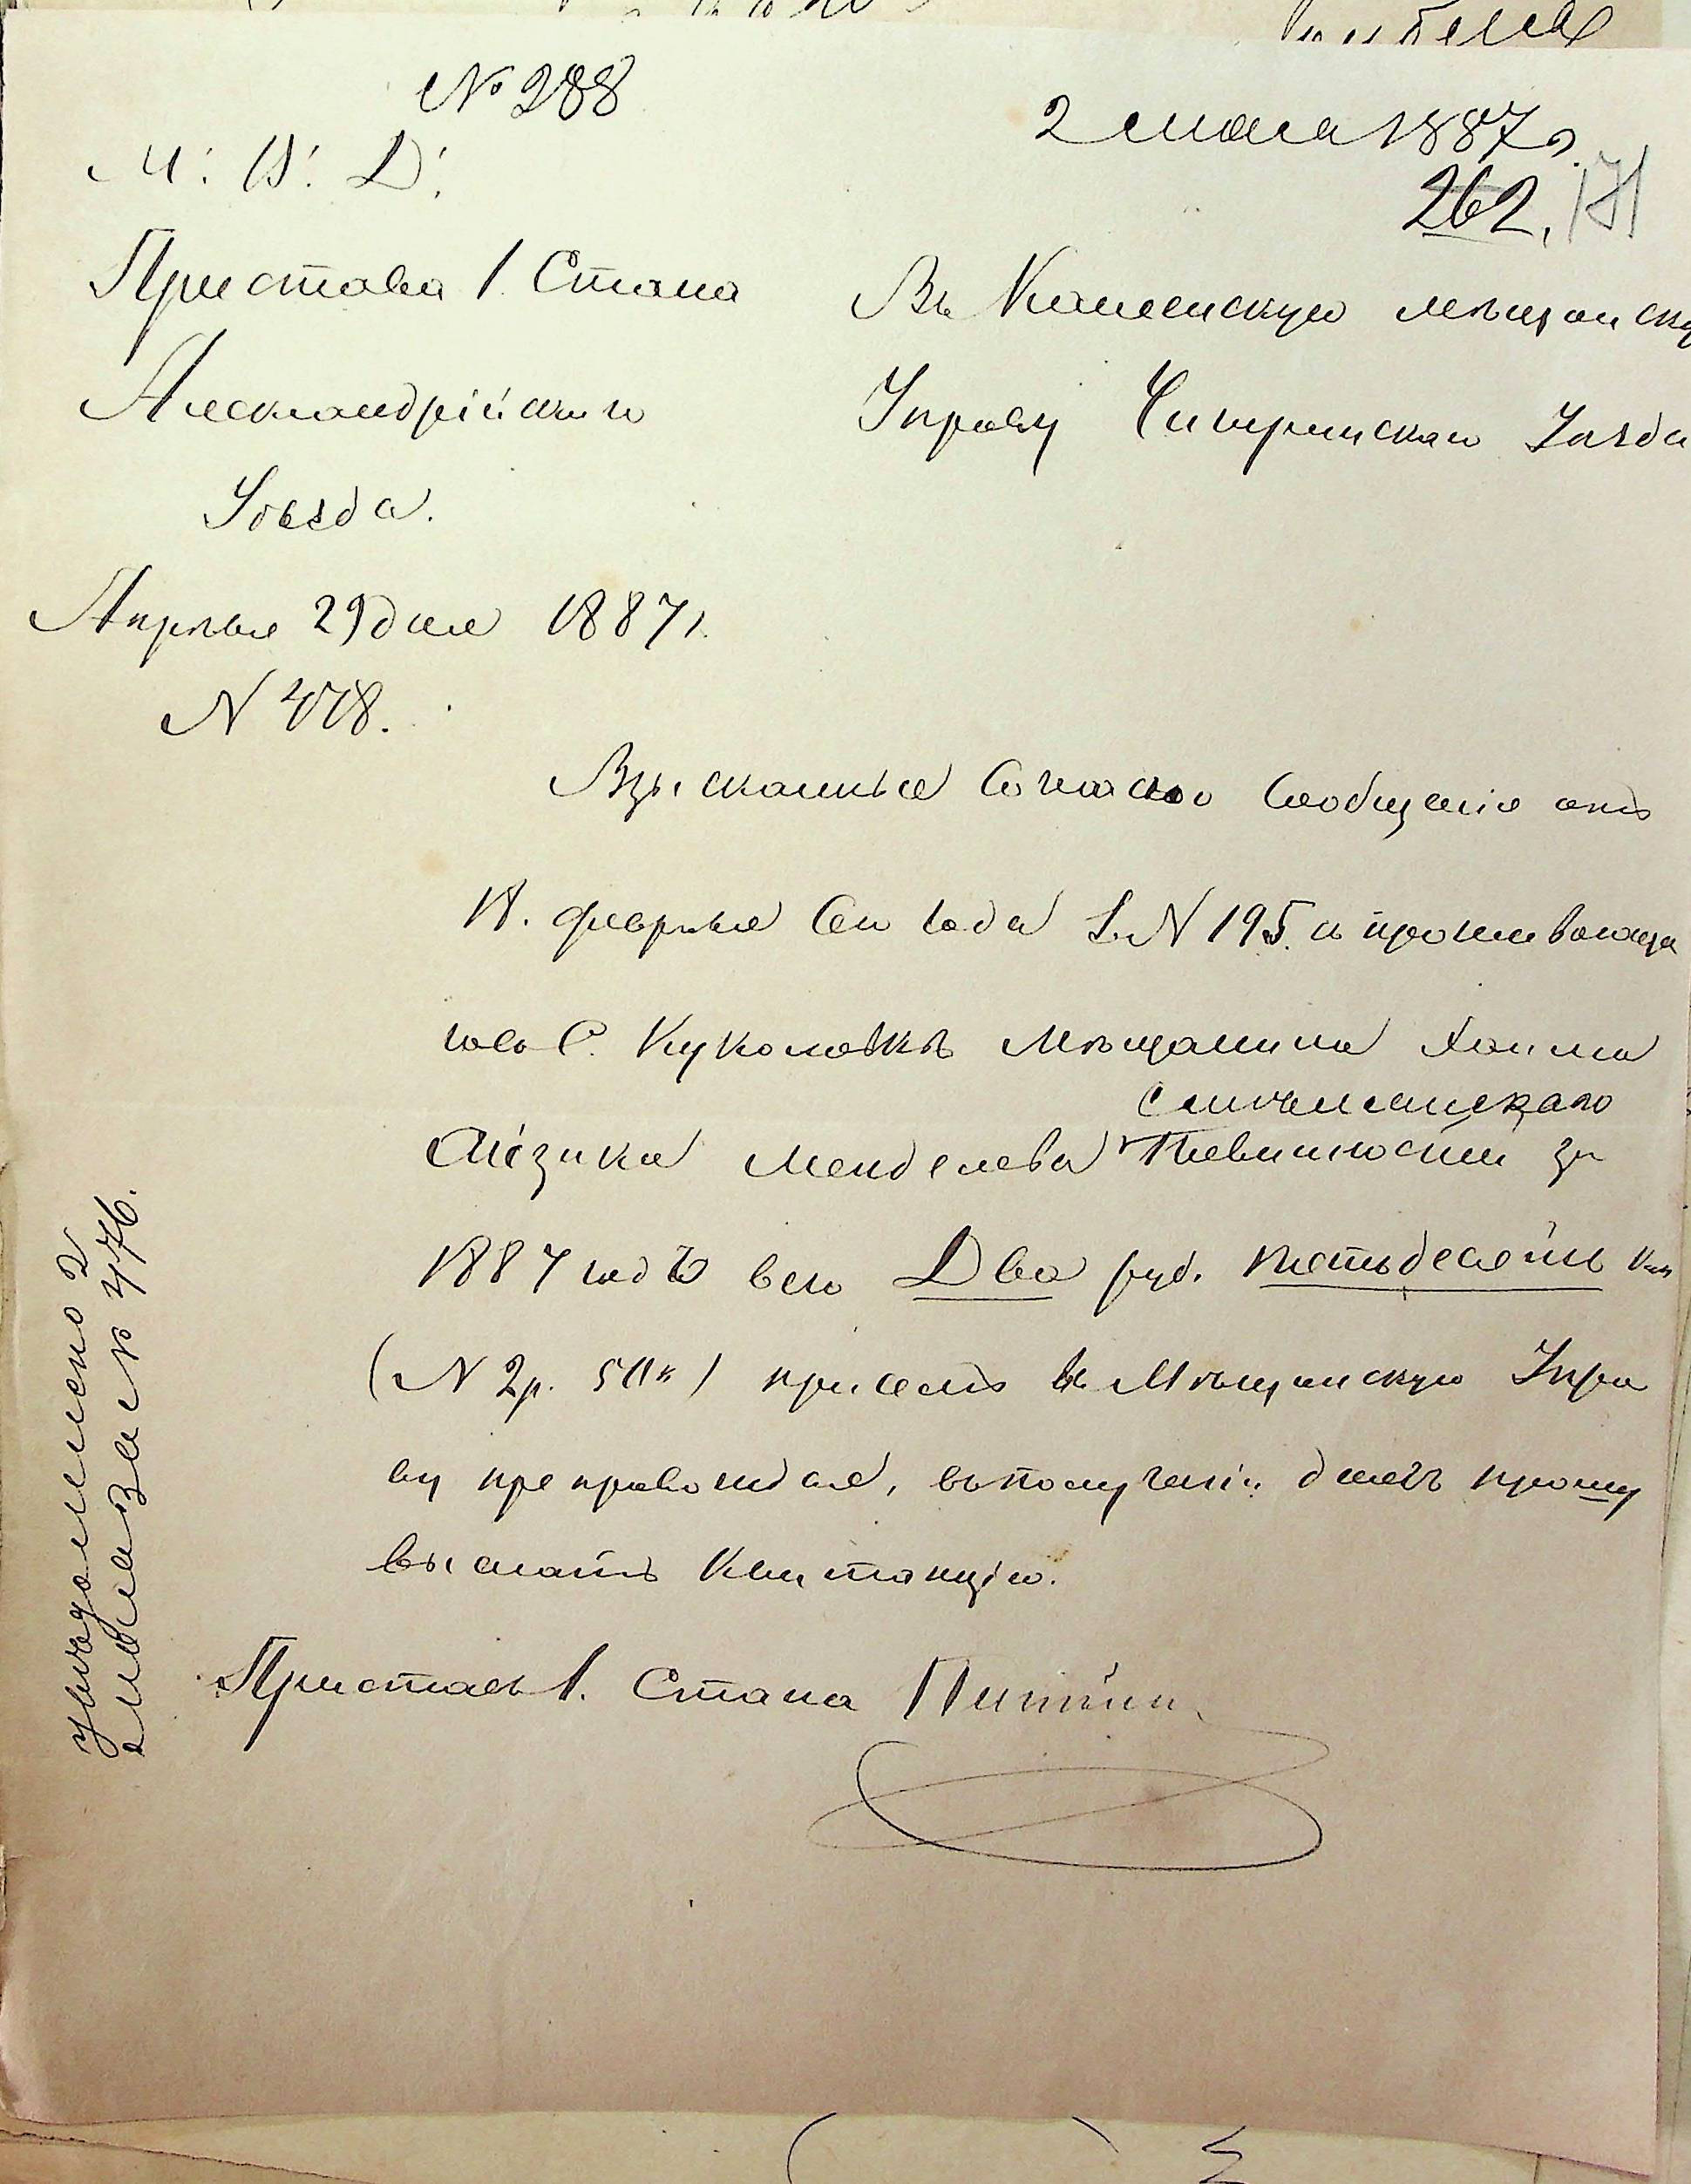 № 288
2 мая 1887 г.
262.
М. В. Д.
Пристава 1. Стана
Александрійскаго
Уѣзда.
Апрѣля 29 дня 1887 г.
N 478.
Въ Каменскую мѣщанску
Управу Чигиринскаго Уѣзда
Взысканные Согласно Сообщенія отъ
18. февраля Сего года за N 195. съ проживающа
го въ С. Куколовкѣ Мѣщанина Хаима
Айзика Менделева
Повинности за
1887 годъ всего Два руб. пятьдесятъ коп
(N 2 р. 50 к) при семъ въ Мѣщанскую Упра
ву препровождая, въ полученіи денегъ прошу
выслать Квитанцію.
Приставъ 1. Стана
Увѣдомлено 2
мая за N 476.